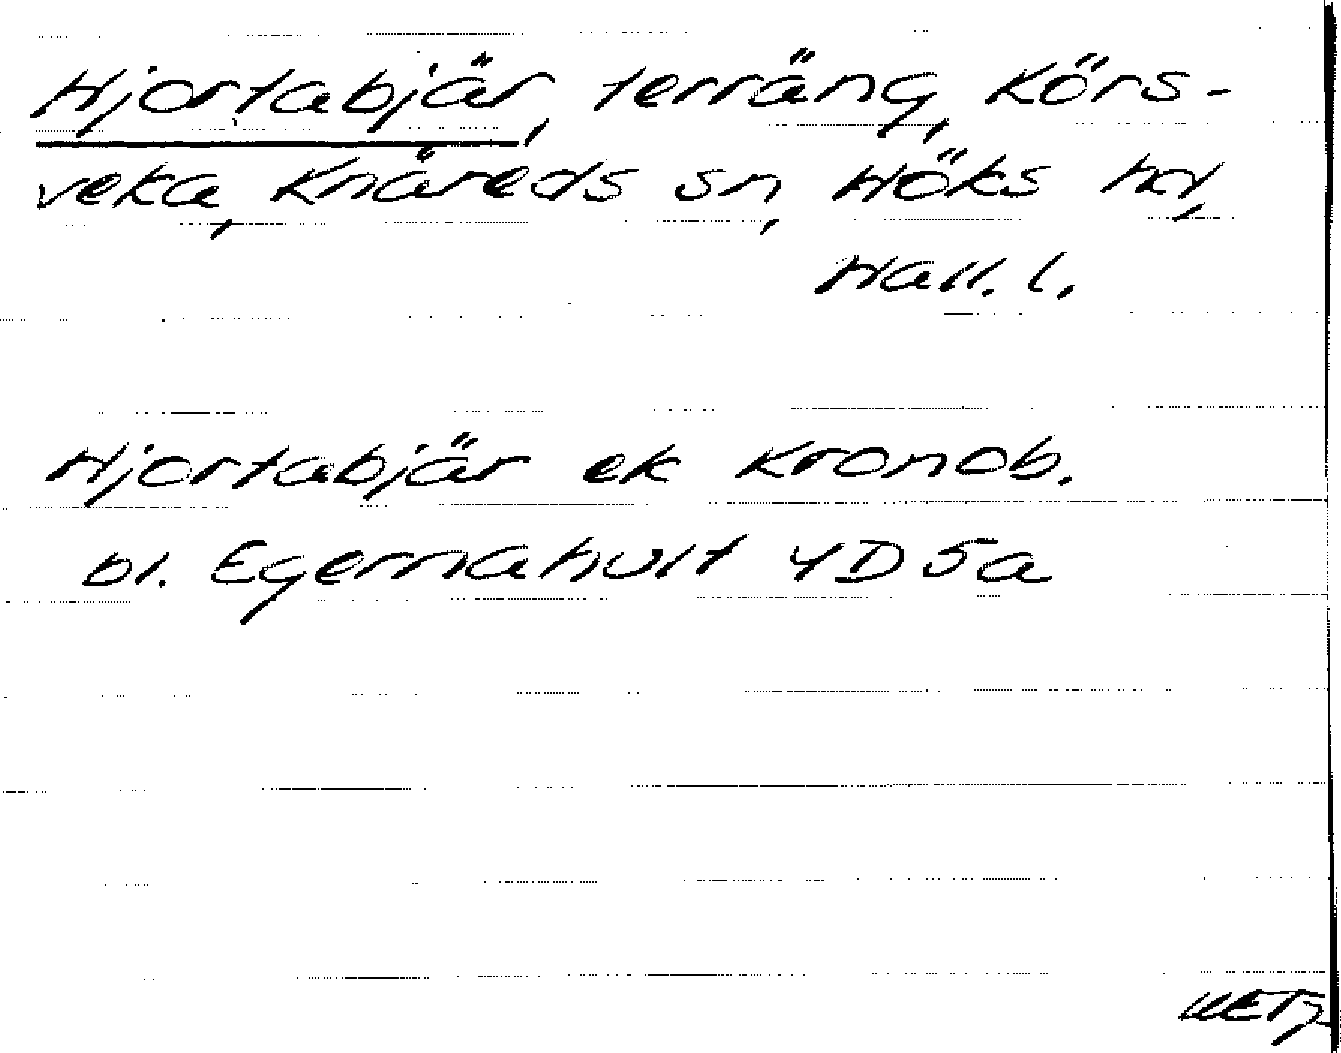 Hjortabjär, terräng, Körs-
veka, Knäreds sn, Höks hd,
Hall. l.
Hjortabjär ek Kronob.
bl. Egernahult 4D 5a